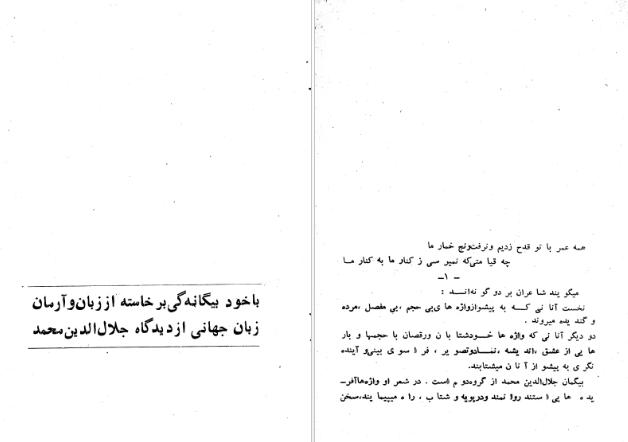 باخود بیگانه‌گی برخاسته از زبان و آرمان
زبان جهانی از دیدگاه جلال‌الدین محمد
همه عمر با تو قدح زدیم ونرفت رنج خمار ما
چه قیا متی‌که نمیر سی ز کنار ما به کنار ما
- ۱ -
میگو یند شا عران بر دو گو نه‌اند :
نخست آنا نی که به پیشوازواژه ها ی‌بی حجم ،بی مفصل ،مرده
و گند یده میروند .
دو دیگر آنا نی که واژه ها خودشتا با ن ورقصان با حجمها و بار
ها یی از عشق ، اند یشه ، نمادوتصو یر ، فر ا سو ی بینی و آینده
نگر ی به پیشو از آ نا ن میشتابند.
بیگمان جلال‌الدین محمد از گروه‌دو م است . در شعر او واژه‌هاآفر-
یده ها یی ا ستند روا نمند ودرپویه و شتا ب ، را ه میپیما یند،سخن